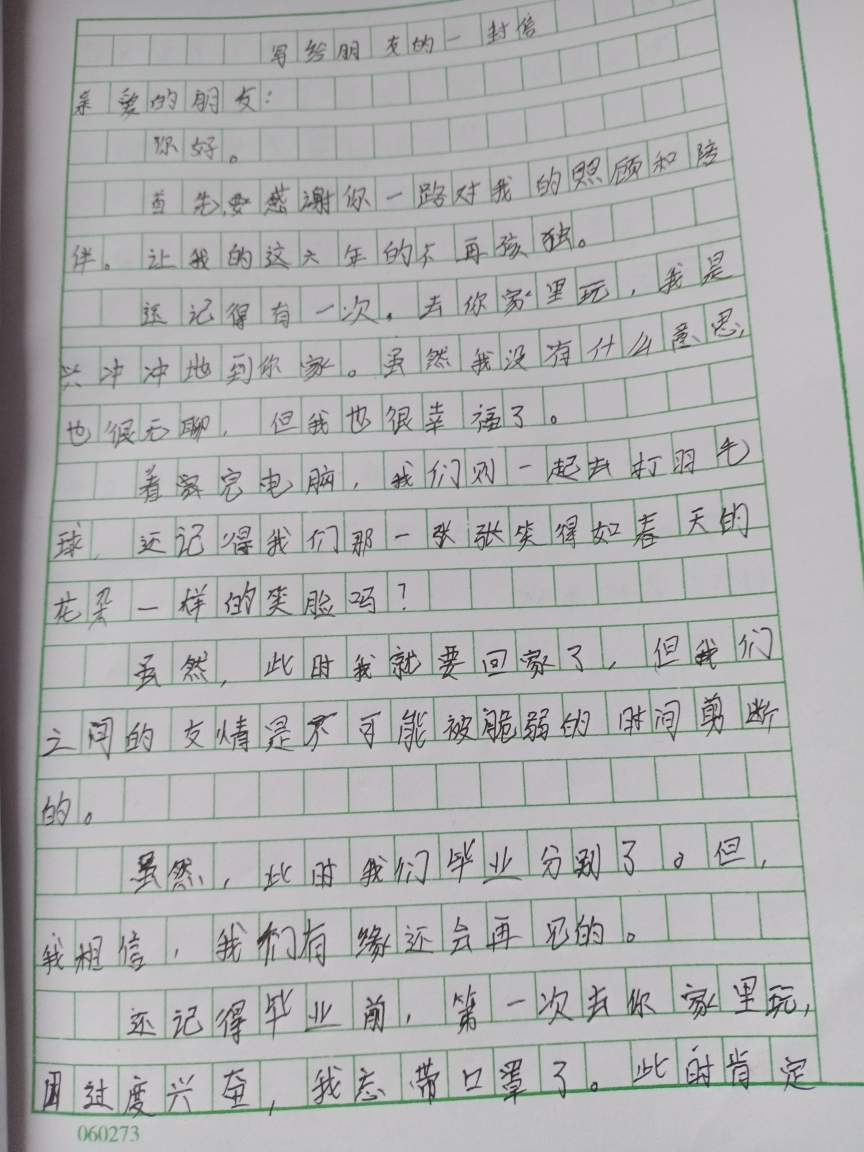 写给朋友的一封信
亲爱的朋友：
你好。
首先,要感谢你一路对我的照顾和陪
伴。让我的这六年的不再孩独。
还记得有一次。去你家里玩，我是
兴冲冲地到你家。虽然我没有什么意思,
也很无聊，但我也很幸福了。
着家完电脑，我们则一起去打羽毛
球，还记得我们那一张张笑得如春天的
花朵一样的笑脸吗？
虽然，此时我就要回家了，但我们
之间的友情是不可能被脆弱的时间剪断
的。
虽然，此时我们毕业分别了。但，
我相信，我们有缘还会再见的。
还记得毕业前，第一次去你家里玩，
因过度兴奋，我忘带口罩了。此时肯定
060273